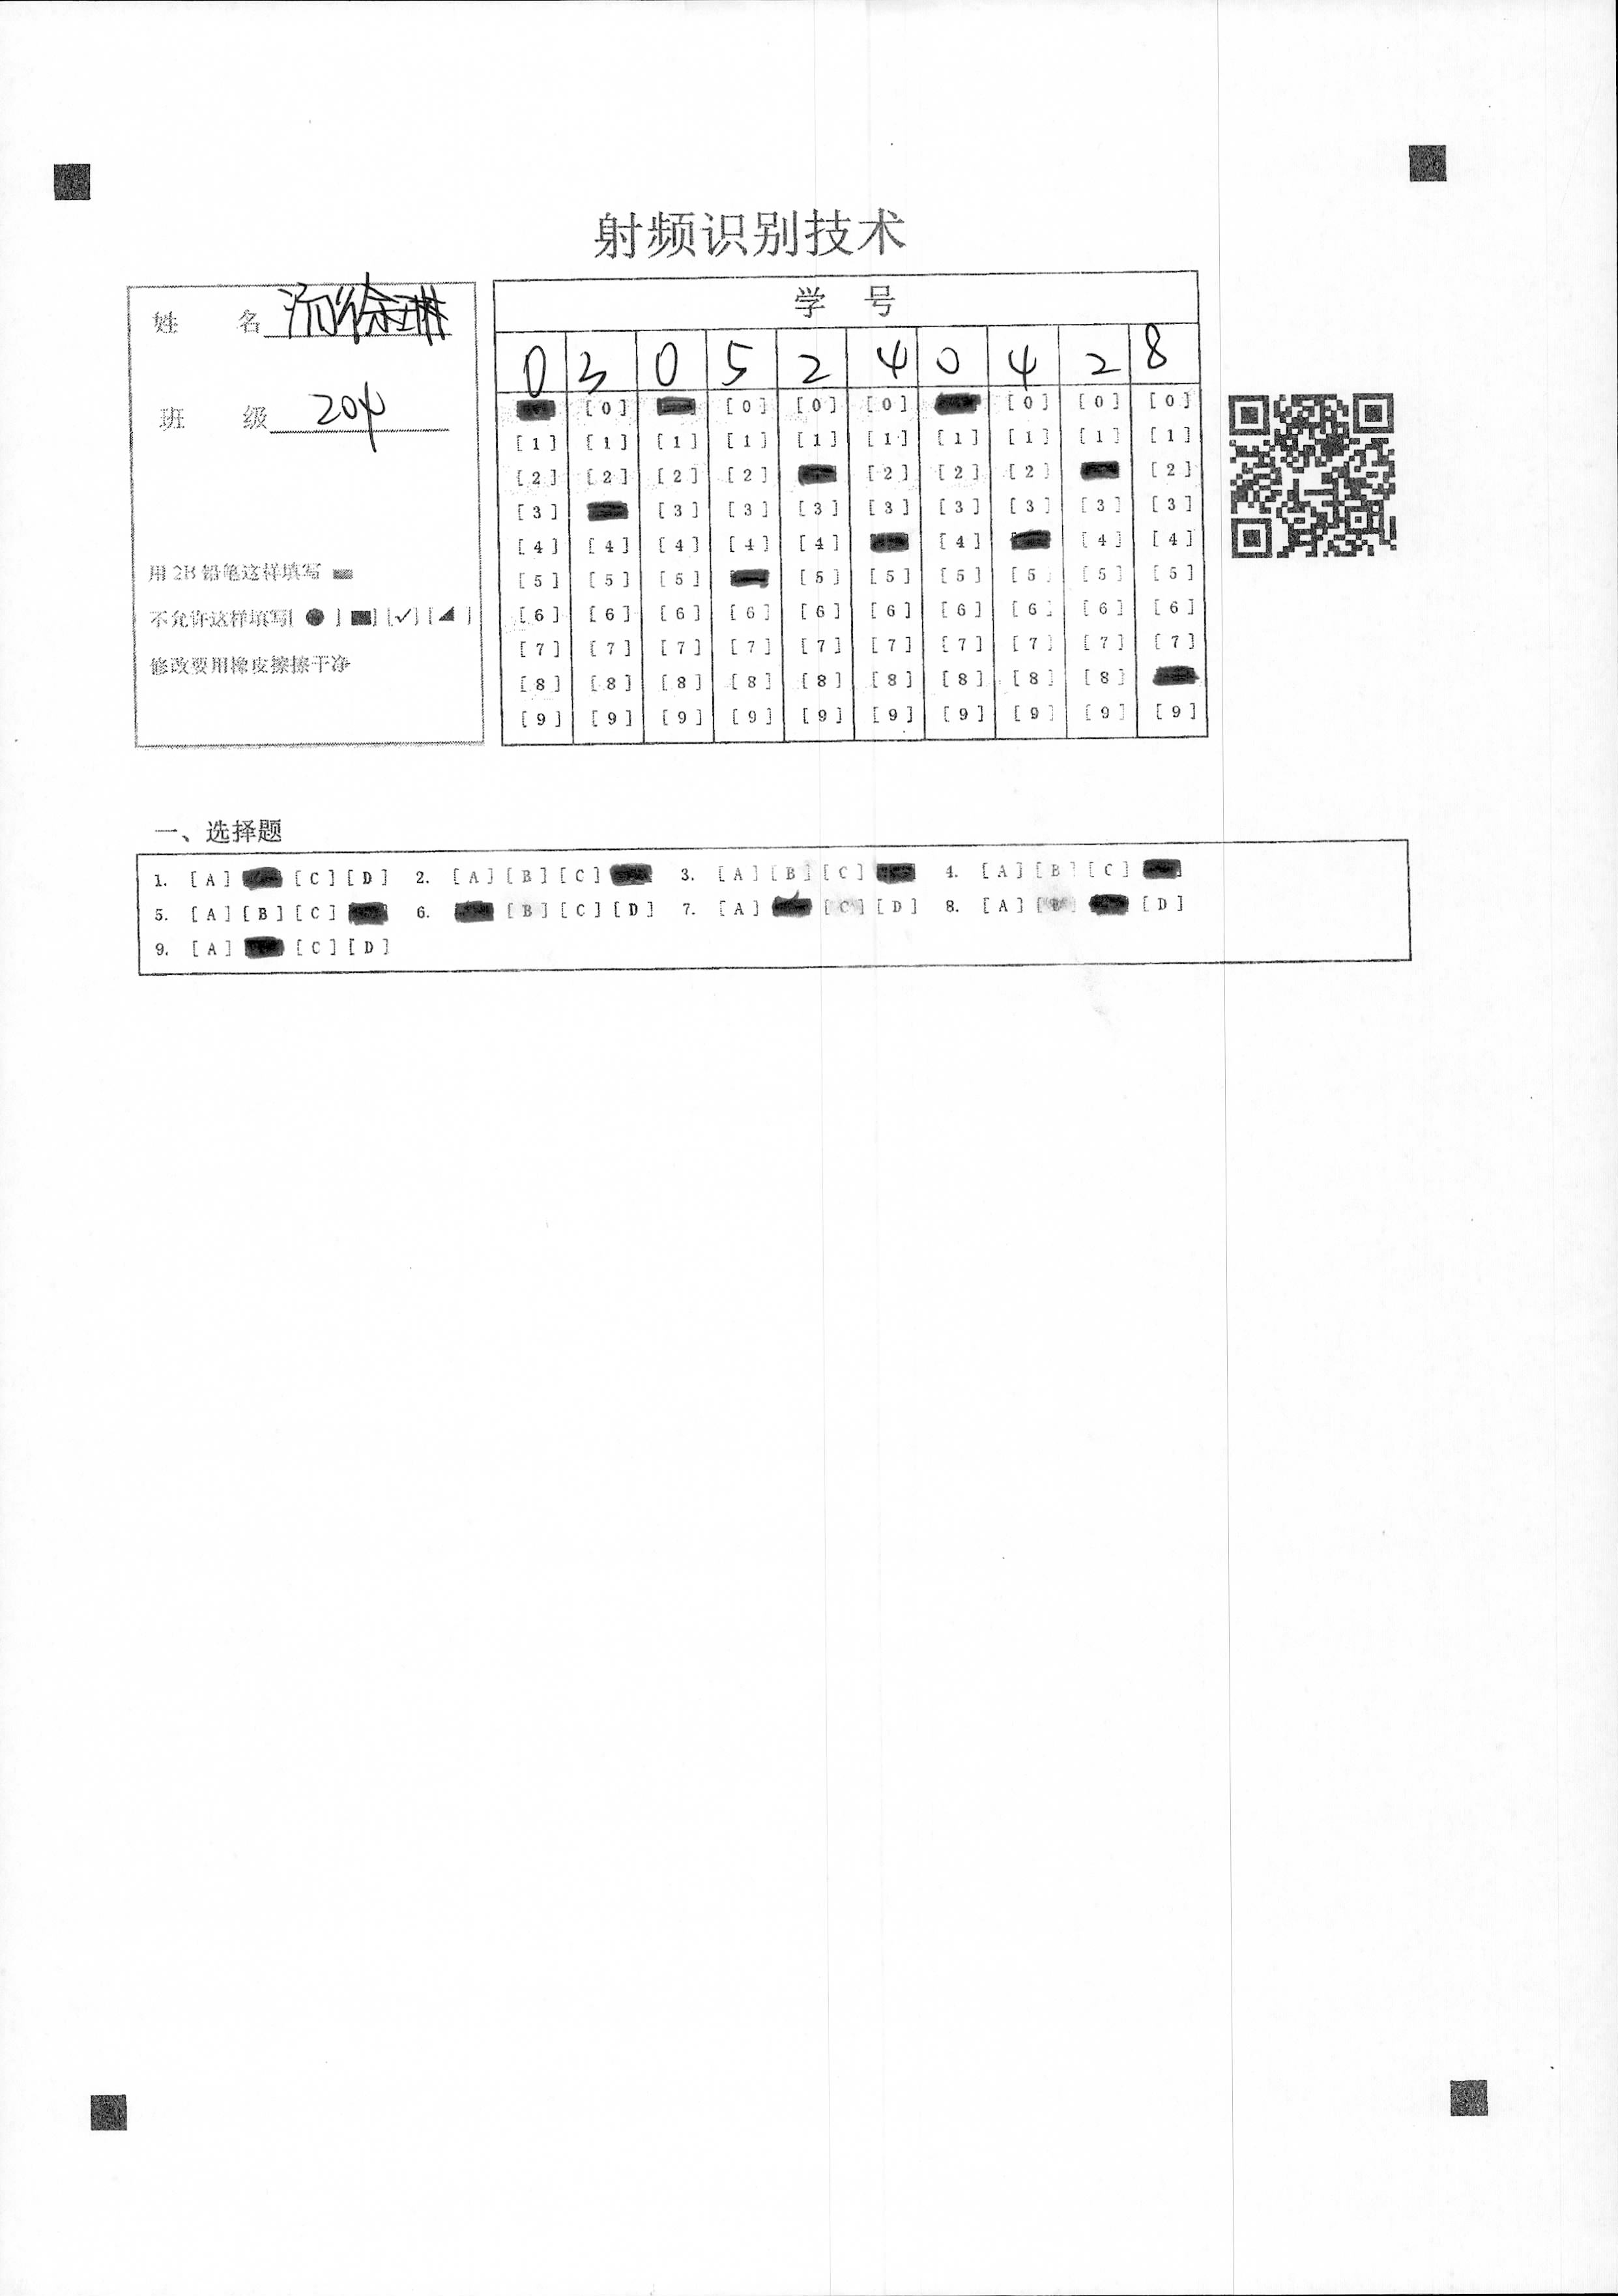 射频识别技术
姓 名
班 级 204
用 2B 铅笔这样填写
不允许这样填写[ ● ] [■] [✓] [◢ ]
修改要用橡皮擦擦干净
学 号
0 3 0 5 2 4 0 4 2 8
[0] [0] [0] [0] [0] [0] [0]
[1] [1] [1] [1] [1] [1] [1] [1] [1] [1]
[2] [2] [2] [2] [2] [2] [2] [2]
[3] [3] [3] [3] [3] [3] [3] [3] [3]
[4] [4] [4] [4] [4] [4] [4] [4]
[5] [5] [5] [5] [5] [5] [5] [5] [5]
[6] [6] [6] [6] [6] [6] [6] [6] [6] [6]
[7] [7] [7] [7] [7] [7] [7] [7] [7] [7]
[8] [8] [8] [8] [8] [8] [8] [8] [8]
[9] [9] [9] [9] [9] [9] [9] [9] [9] [9]
一、选择题
1. [A] [C] [D] 2. [A] [B] [C] 3. [A] [B] [C] 4. [A] [B] [C]
5. [A] [B] [C] 6. [B] [C] [D] 7. [A] [C] [D] 8. [A] [B] [D]
9. [A] [C] [D]